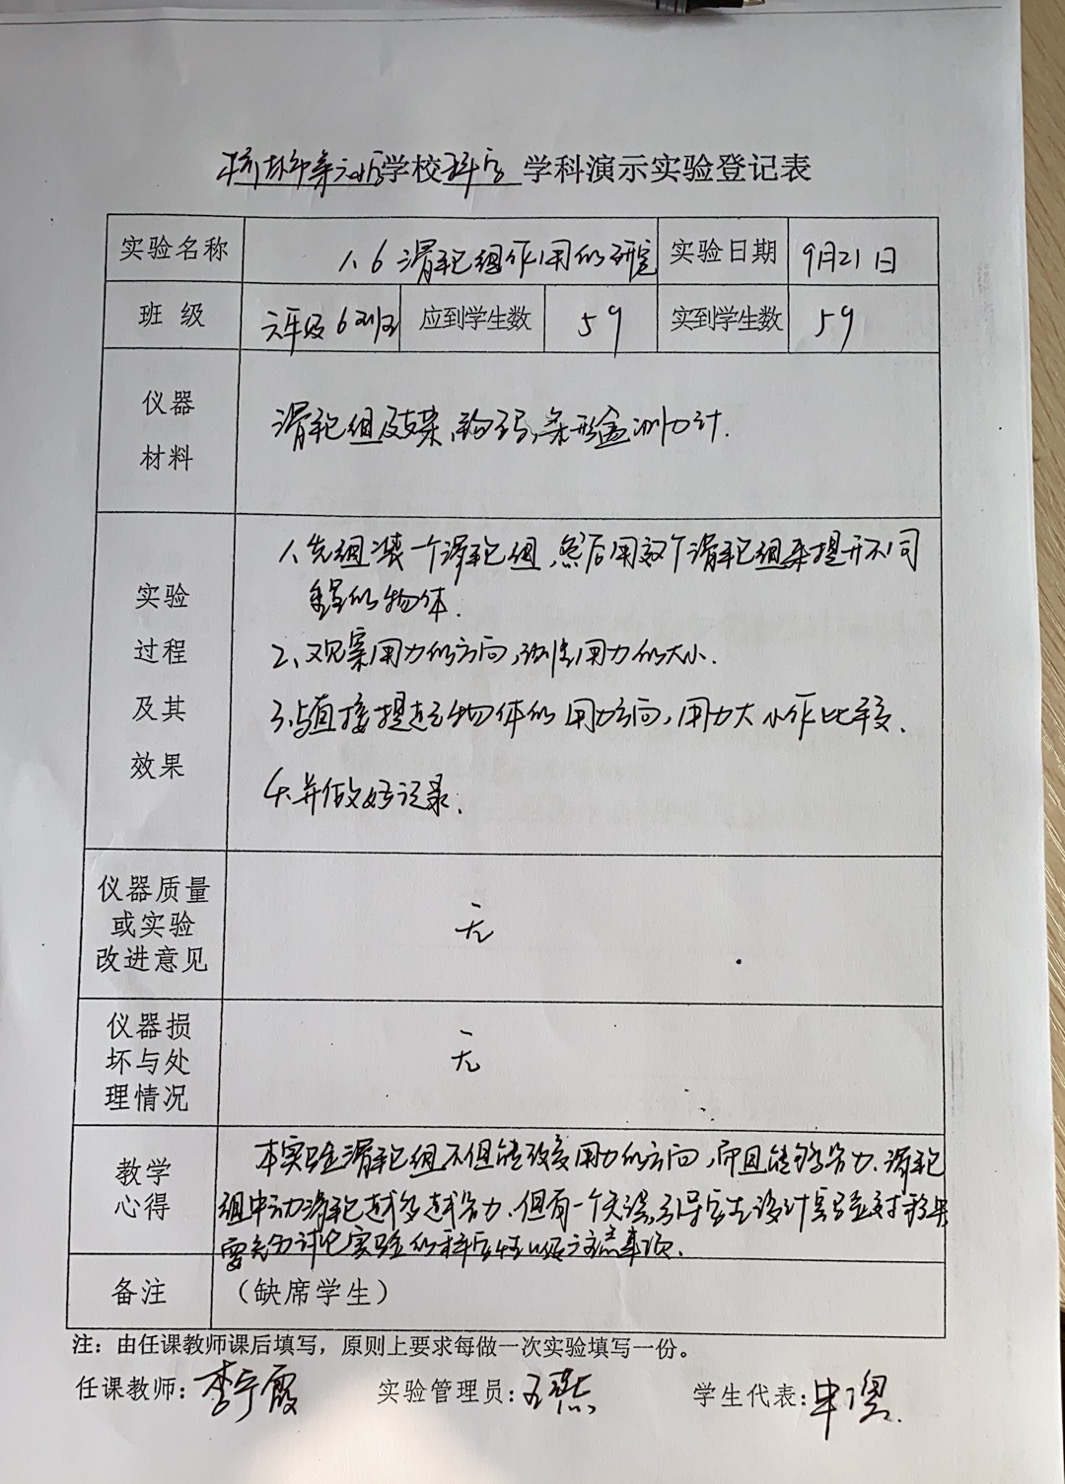 学校科学学科演示实验登记表
实验名称 1、6滑轮组作用的研究 实验日期 9月21日
班 级 六年级6班 应到学生数 59 实到学生数 59
仪器
材料
滑轮组及支架,钩码,条形盒测力计.
实验
过程
及其
效果
1、先组装一个滑轮组,然后用这个滑轮组来提升不同
重量的物体.
2、观察用力的方向,用力的大小.
3、与直接提起物体的用力方向,用力大小作比较、
4、并做好记录.
仪器质量
或实验
改进意见
无
仪器损
坏与处
理情况
无
教学
心得
本实验滑轮组不但能改变用力的方向,而且能够省力.滑轮
组中动滑轮越多越省力.但有一个,引导学生设计实验时
要充分讨论实验的科学性以及注意事项.
备注 (缺席学生)
注:由任课教师课后填写,原则上要求每做一次实验填写一份。
任课教师:李宇霞 实验管理员:王燕 学生代表: